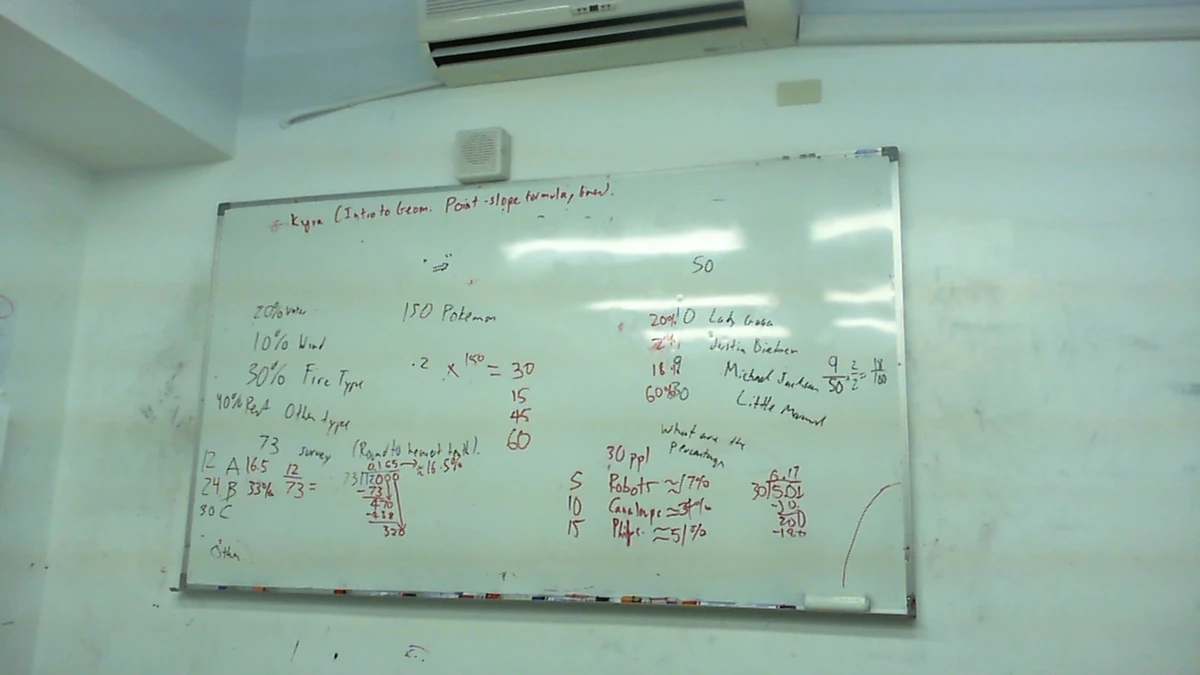 Kyon (Intro to Geom. Point-slope formula, lines).
50
20% Water
150 Pokemon
10% Wind
30% Fire Type
.2 x 150 = 30
15
45
60
40% Rest Other type
20% 10 Lady Gaga
2% Justin Bieber
18% 9 Michael Jackson 9/50 · 2/2 = 18/100
60% 30 Little Mermaid
73 survey (Round to nearest tenth).
12 A 16.5 12/73 =
24 B 33%
30 C
Other
0.165 → ≈16.5%
73 12000
-73
470
-438
320
What are the
percentages
30 ppl
5 Robots ≈17%
10 Cantalope ≈34%
15 Philips ≈51%
0.17
30 5.01
-30
200
-180